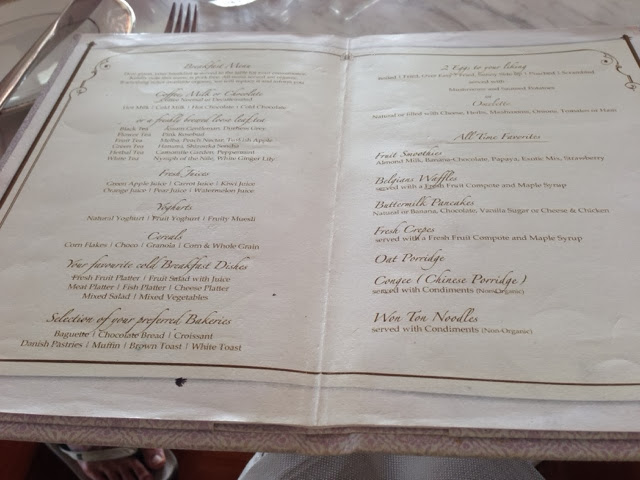 Breakfast Menu
Coffee, Milk or Chocolate
Hot Milk | Cold Milk | Hot Chocolate | Cold Chocolate
or a freshly brewed loose leaf tea
Black Tea
Flower Tea Pink Rosebud
Fruit Tea
Green Tea
Herbal Tea Camomille Garden, Peppermint
White Tea Nymph of the Nile, White Ginger Lily
Fresh Juices
Green Apple Juice | Carrot Juice | Kiwi Juice
Orange Juice | Pear Juice | Watermelon Juice
Yoghurts
Natural Yoghurt | Fruit Yoghurt | Fruity Muesli
Cereals
Corn Flakes | Choco | Granola | Corn & Whole Grain
Your favourite cold Breakfast Dishes
Fresh Fruit Platter | Fruit Salad with Juice
Meat Platter | Fish Platter | Cheese Platter
Mixed Salad | Mixed Vegetables
Selection of your preferred Bakeries
Baguette | Chocolate Bread | Croissant
Danish Pastries | Muffin | Brown Toast | White Toast
2 Eggs to your liking
served with
Mushrooms and Sauteed Potatoes
or
Omelette
Natural or filled with Cheese, Herbs, Mushroom, Onions, Tomatoes or Ham
All Time Favorites
Fruit Smoothies
Almond Milk, Banana-Chocolate, Papaya, Exotic Mix, Strawberry
Belgians Waffles
served with a Fresh Fruit Compote and Maple Syrup
Buttermilk Pancakes
Natural or Banana, Chocolate, Vanilla Sugar or Cheese & Chicken
Fresh Crepes
served with a Fresh Fruit Compote and Maple Syrup
Oat Porridge
Congee ( Chinese Porridge )
served with Condiments (Non-Organic)
Won Ton Noodles
served with Condiments (Non-Organic)